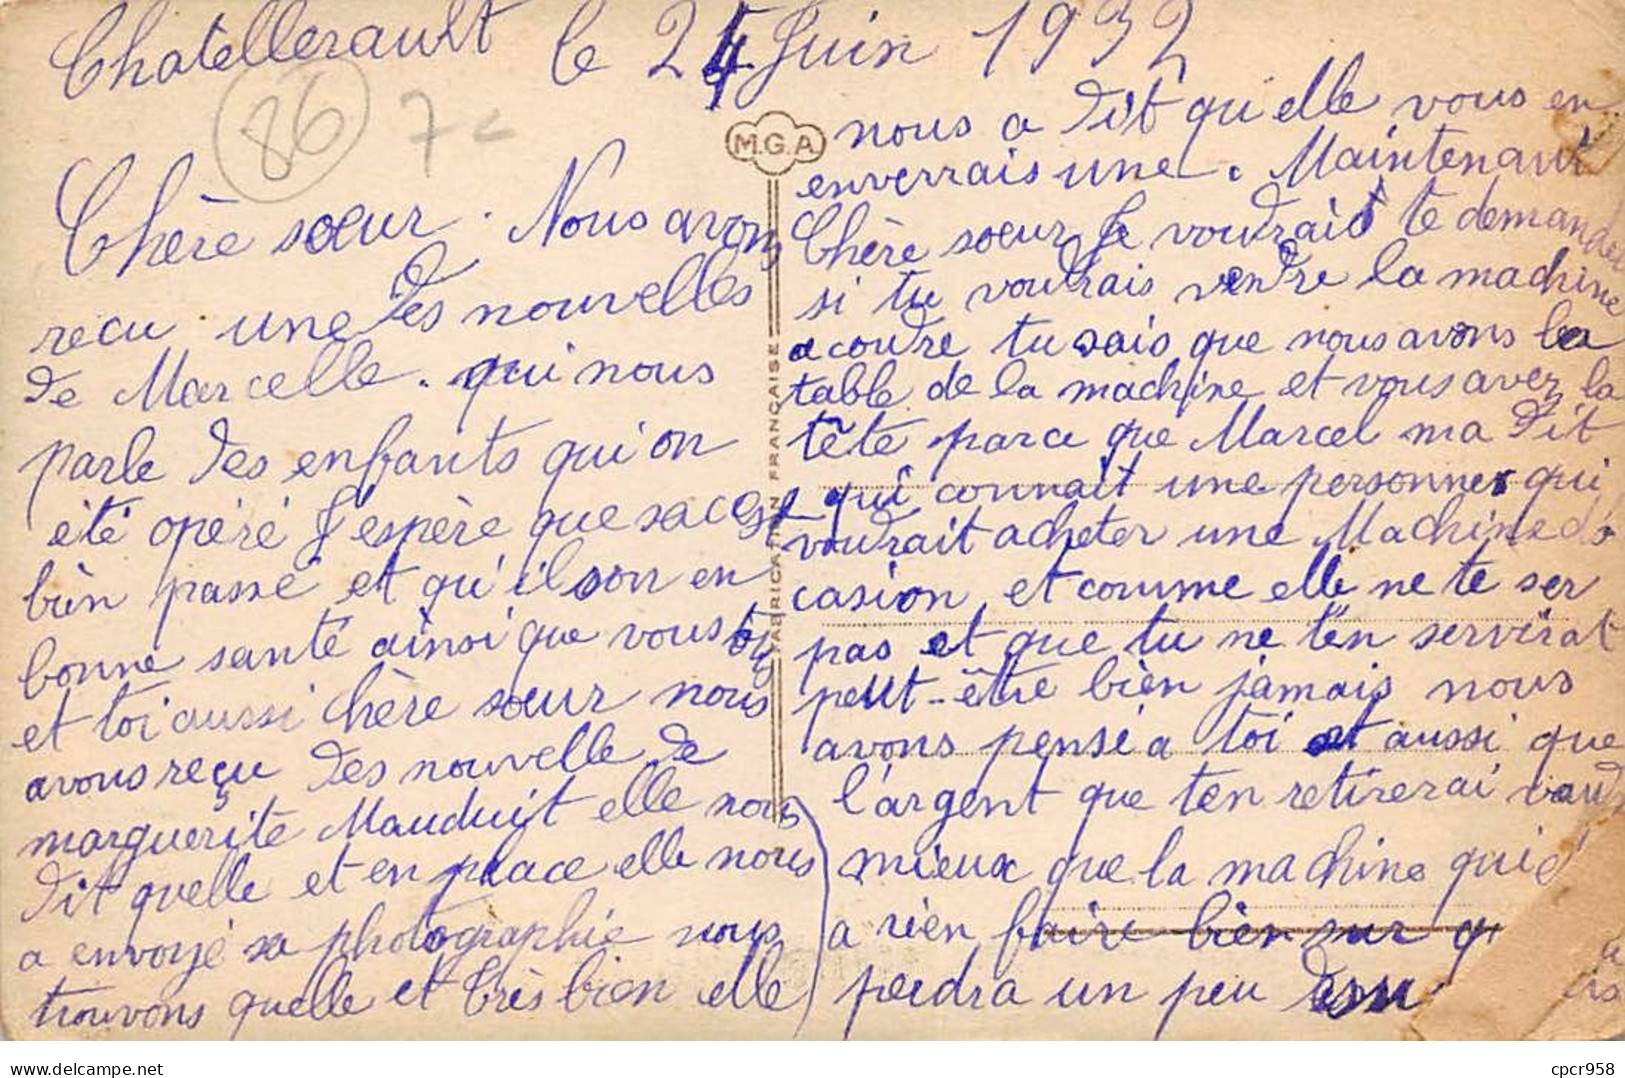 Chatellerault le 24 Juin 1932
86 7€
Chère sœur. Nous avons
recu une des nouvelles
de Marcelle. qui nous
parle des enfants qui on
été opéré J'espère que sa cest
bièn passé et qu'il son en
bonne santé ainsi que vous
et toi aussi chère sœur nous
avons reçu des nouvelle de
marguerite Mauduit elle nous
dit quelle et en place elle nous
a envoyé sa photographie nous
trouvons quelle et très bien elle
M.G.A.
FABRICATION FRANÇAISE
nous a dit qu'elle vous en
enverrais une. Maintenant
Chère sœur Je voudrais te demander
si tu voudrais vendre la machine
a coudre tu sais que nous avons la
table de la machine et vous avez la
tête parce que Marcel ma dit
qui connait une personne qui
voudrait acheter une Machine d'o
casion et comme elle ne te ser
pas et que tu ne t'en servirat
peut-être bièn jamais nous
avons pensé a toi et aussi que
l'argent que ten retirerai vaud
mieux que la machine qui
a rièn faire bièn sur q
perdra un peu dessu
cpcr958